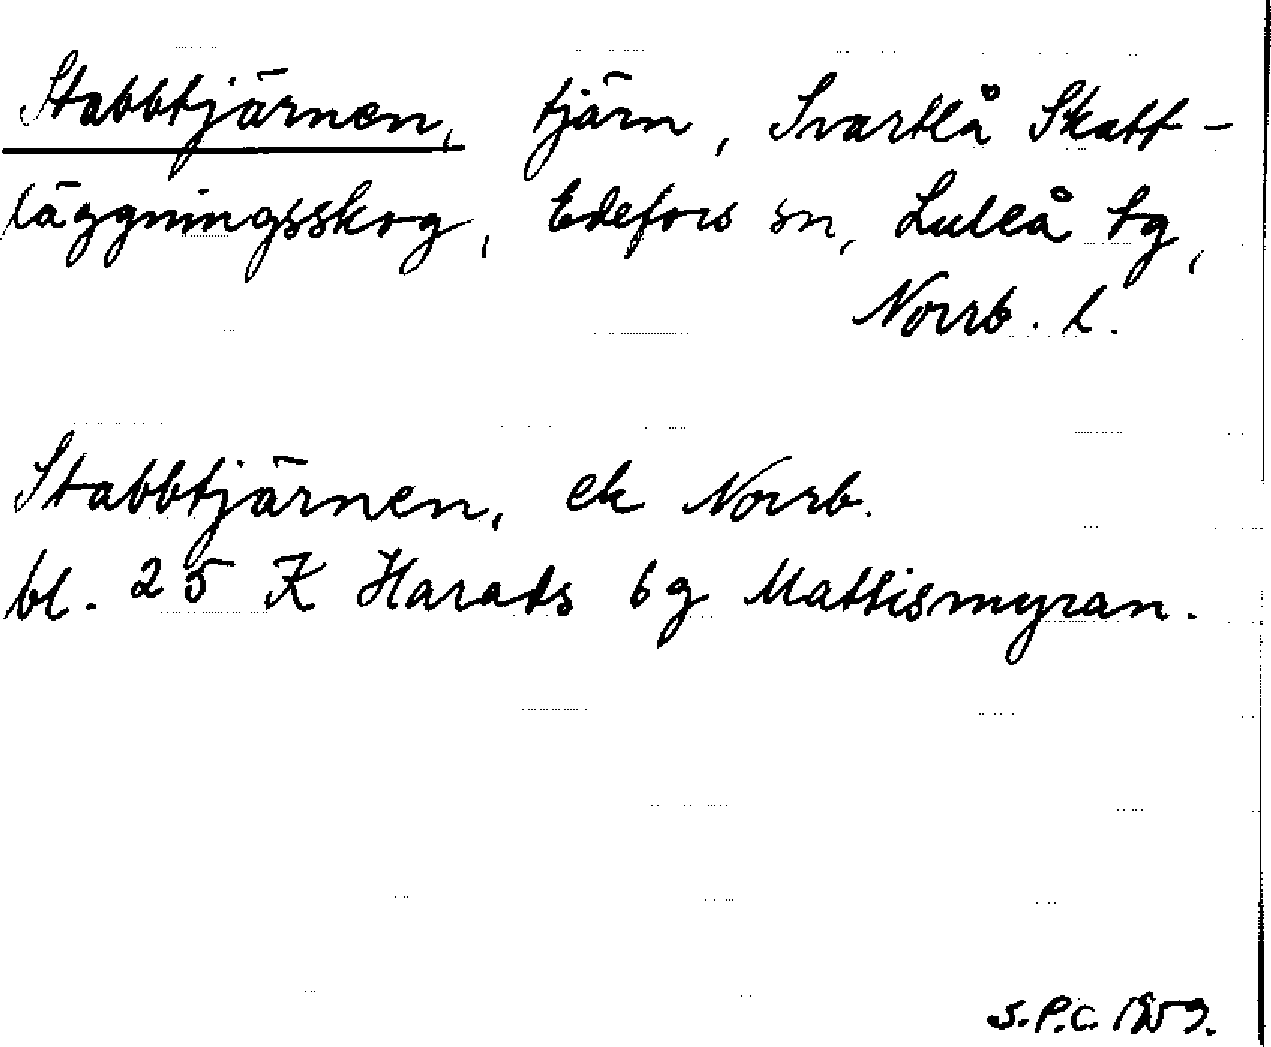 Stabbtjärnen, tjärn, Svartlå Skatt-
läggningsskog, Edefors sn, Luleå tg,
Norrb. l.
Stabbtjärnen, ek Norrb.
bl. 25 K Harads bg Mattismyran.
S.P.C. 1959.